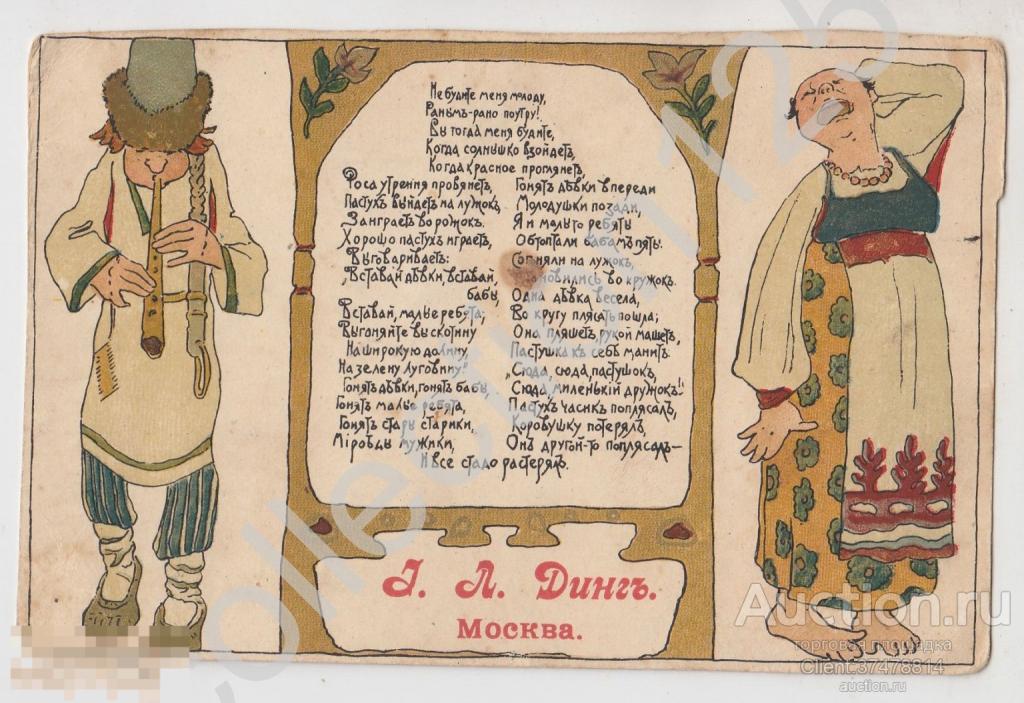 Не будите меня молоду,
Ранымъ-рано поутру!
Вы тогда меня будите,
Когда солнышко взойдетъ,
Когда красное проглянетъ,
Роса утрення провянетъ,
Пастухъ выйдетъ на лужокъ,
Заиграетъ во рожокъ.
Хорошо пастухъ играетъ,
Выговариваетъ:
„Вставай дѣвки, вставай,
бабы,
Вставай, малые ребята;
Выгоняйте вы скотину
На широкую долину,
На зелену луговину!
Гонятъ дѣвки, гонятъ бабы,
Гонятъ малые ребята,
Гонятъ стары старики,
Міроѣды мужики,
Гонятъ дѣвки впереди
Молодушки позади,
Я и малыго ребяты
Обтоптали бабамъ пяты.
Согнали на лужокъ,
во кружокъ.
Одна дѣвка весела,
Во кругу плясать пошла;
Она пляшетъ, рукой машетъ,
Пастушка къ себѣ манитъ.
„Сюда, сюда, пастушокъ,
Сюда, миленькій дружокъ!"
Пастухъ часикъ поплясалъ,
Коровушку потерялъ,
Онъ другой-то поплясалъ—
И все стадо растерялъ.
І. Л. Дингъ.
Москва.
Auction.ru
торговая площадка
Client:37478814
auction.ru